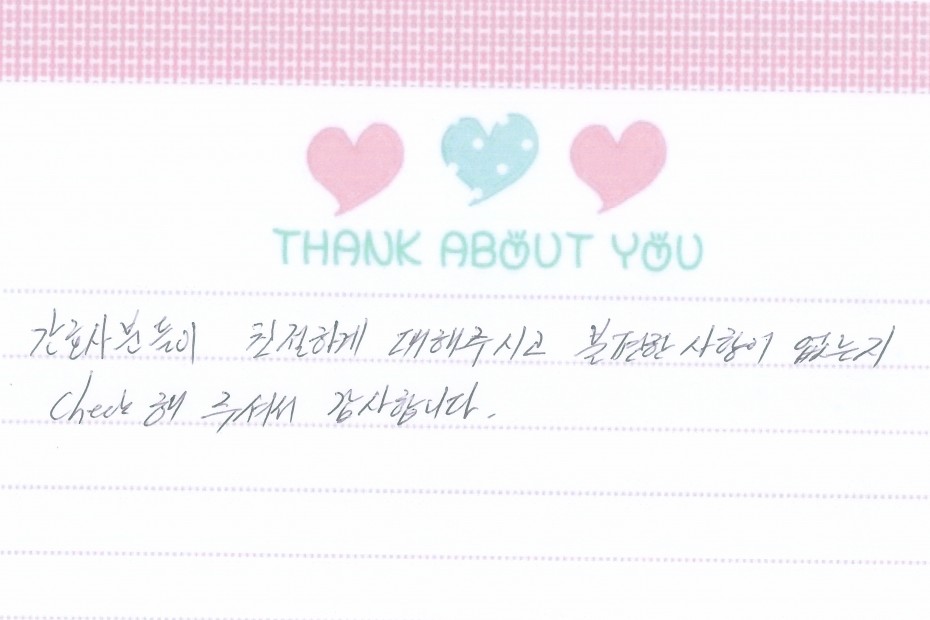 THANK ABOUT YOU
간호사분들이 친절하게 대해주시고 불편한 사항이 없는지
Check 해 주셔서 감사합니다.